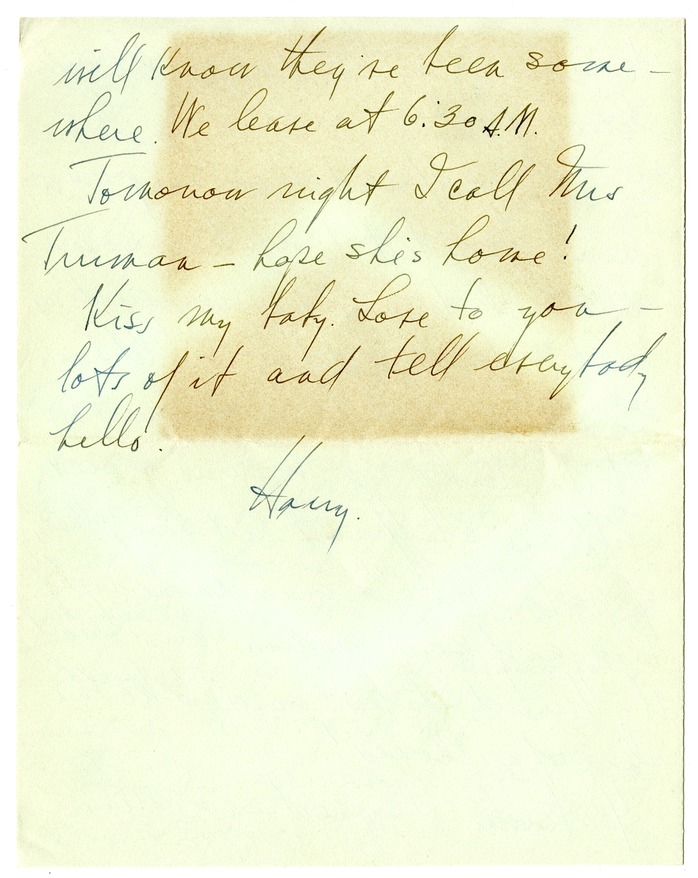 will know they've been some-
where. We leave at 6:30 A.M.
Tomorrow night I call Mrs
Truman - hope she's home!
Kiss my baby. Love to you -
lots of it and tell everybody
hello.
Harry.